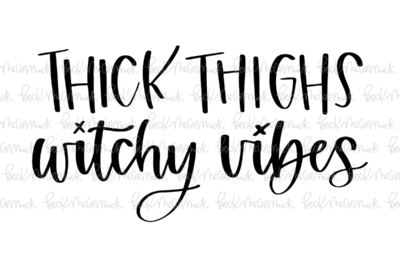 THICK THIGHS
witchy vibes